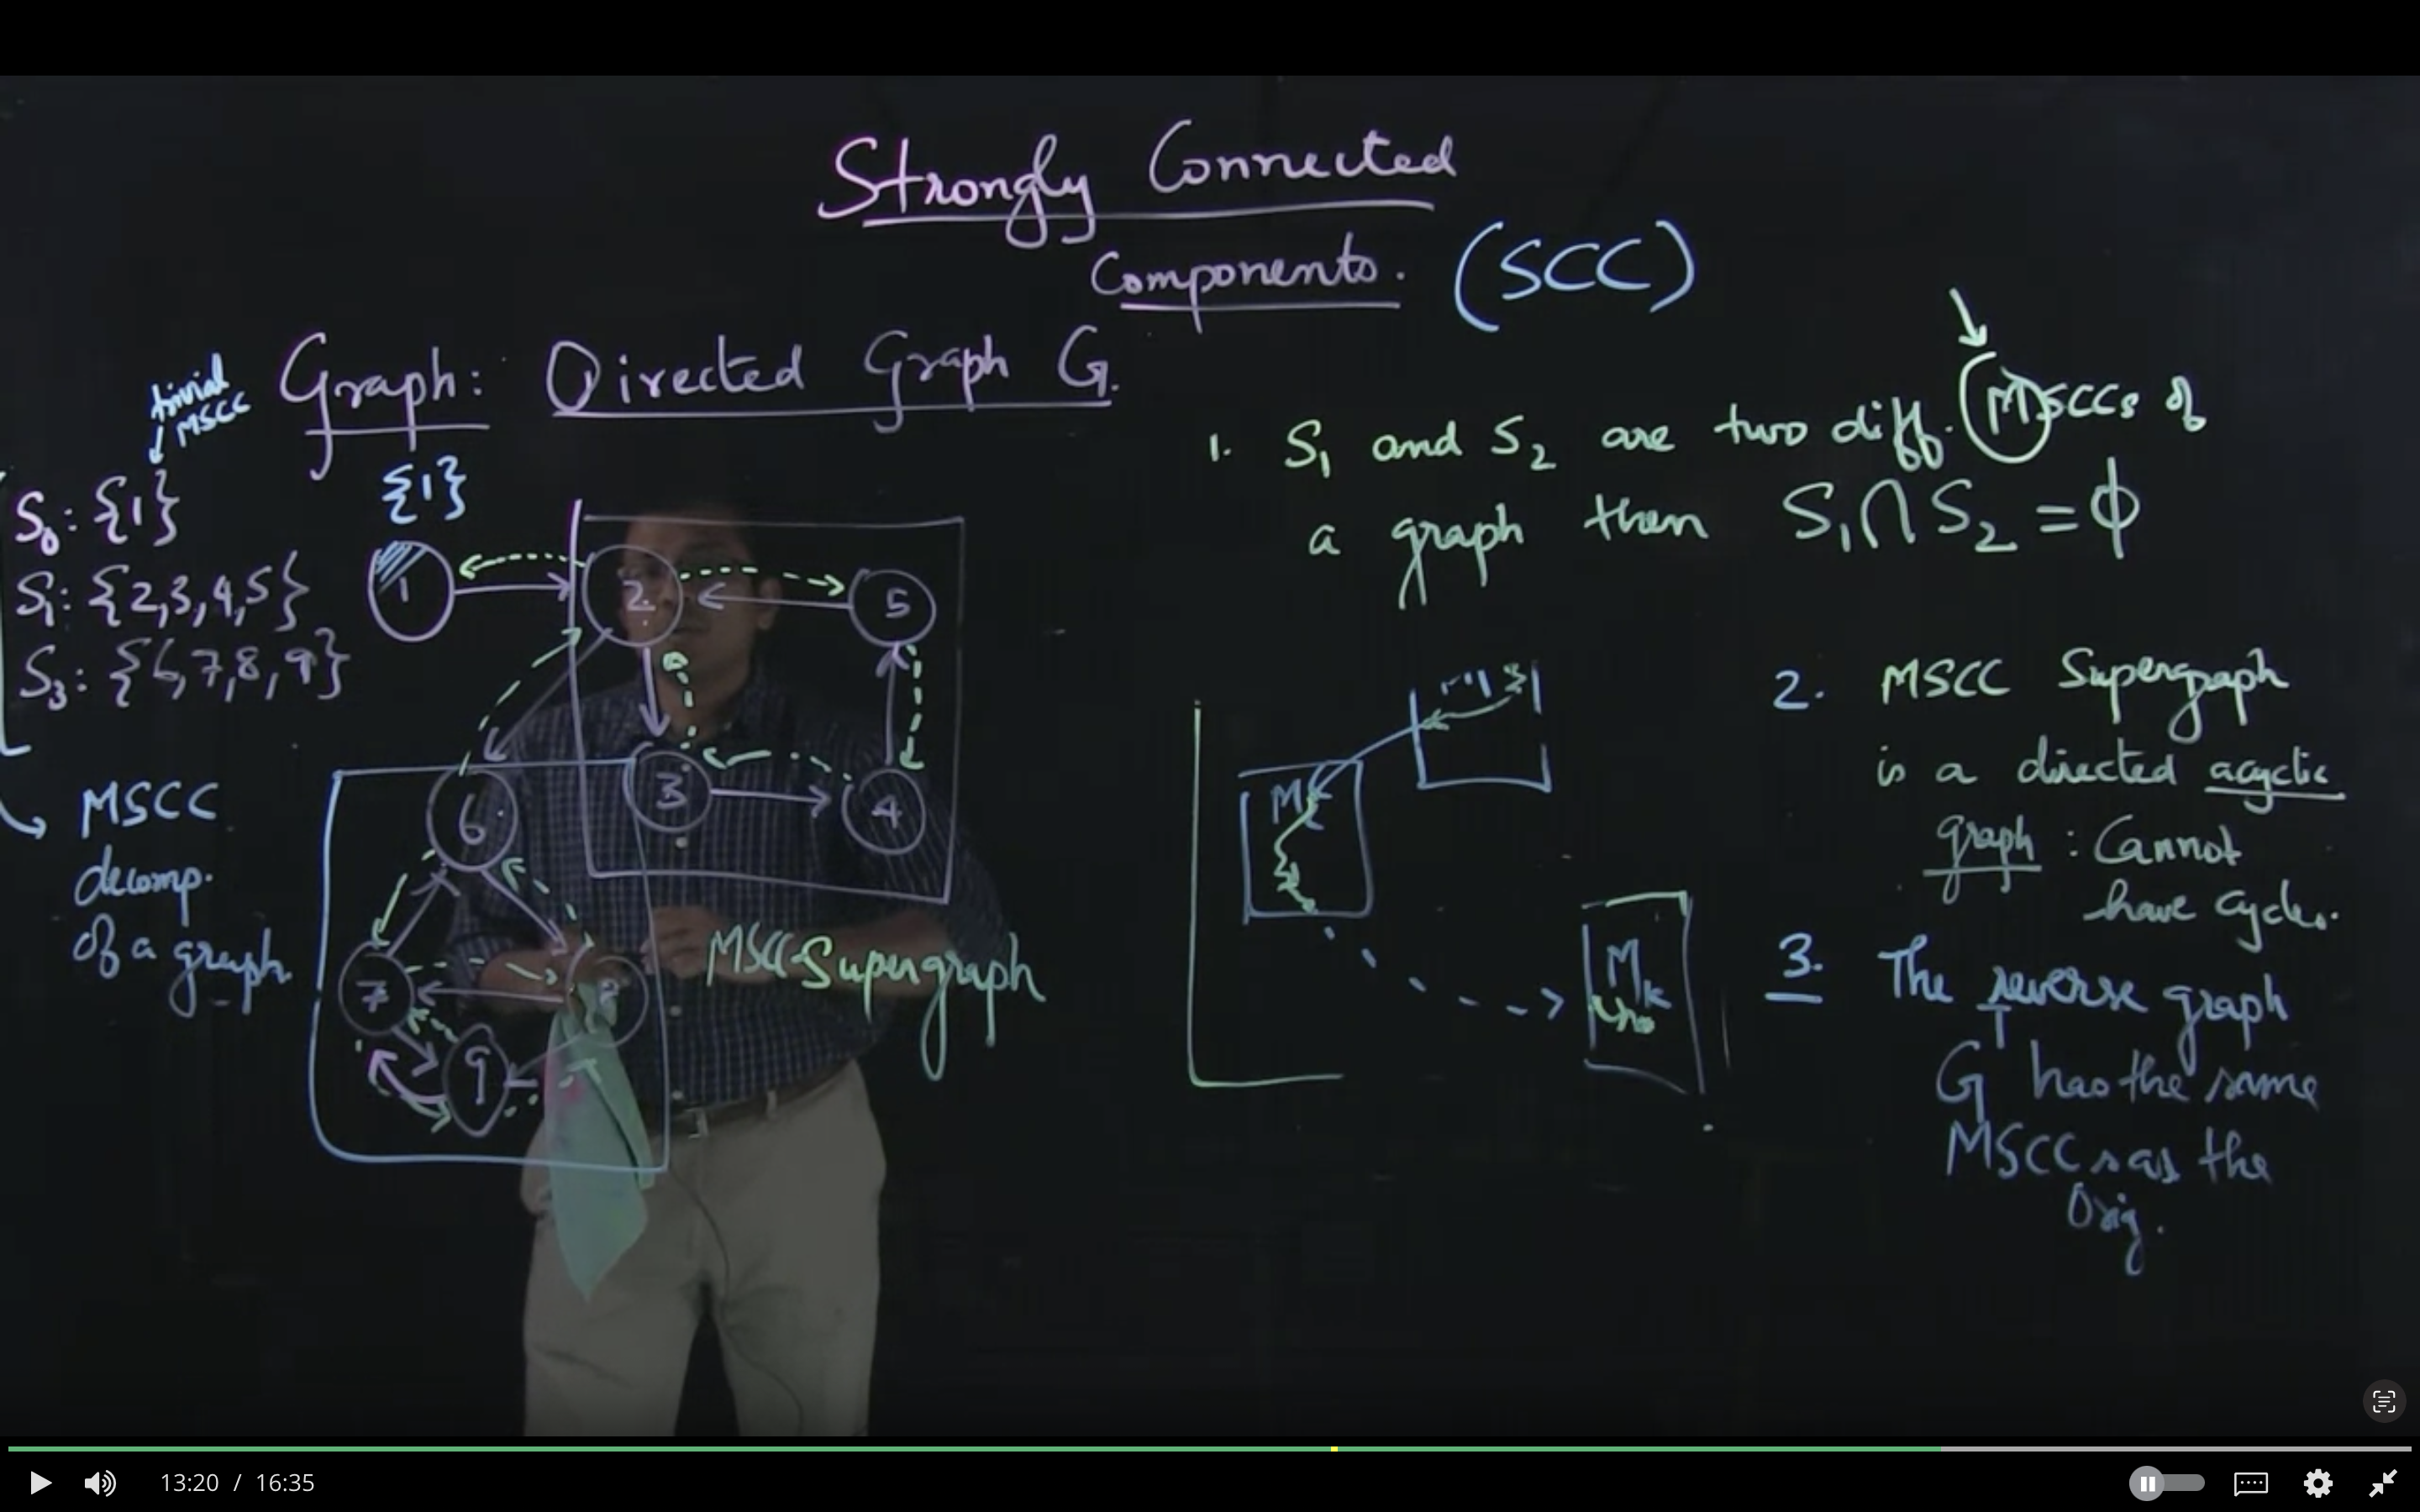 Strongly Connected
Components. (SCC)
Graph: Directed Graph G.
trivial
MSCC
S0: {1}
S1: {2,3,4,5}
S3: {6,7,8,9}
MSCC
decomp.
of a graph.
{1}
1
2
5
3
4
6
7
8
9
MSCC Supergraph
1. S1 and S2 are two diff. MSCCs of
a graph then S1 ∩ S2 = ϕ
Mk
2. MSCC Supergraph
is a directed acyclic
graph : Cannot
have cycles.
3. The reverse graph
G^T has the same
MSCCs as the
Orig.
13:20 / 16:35